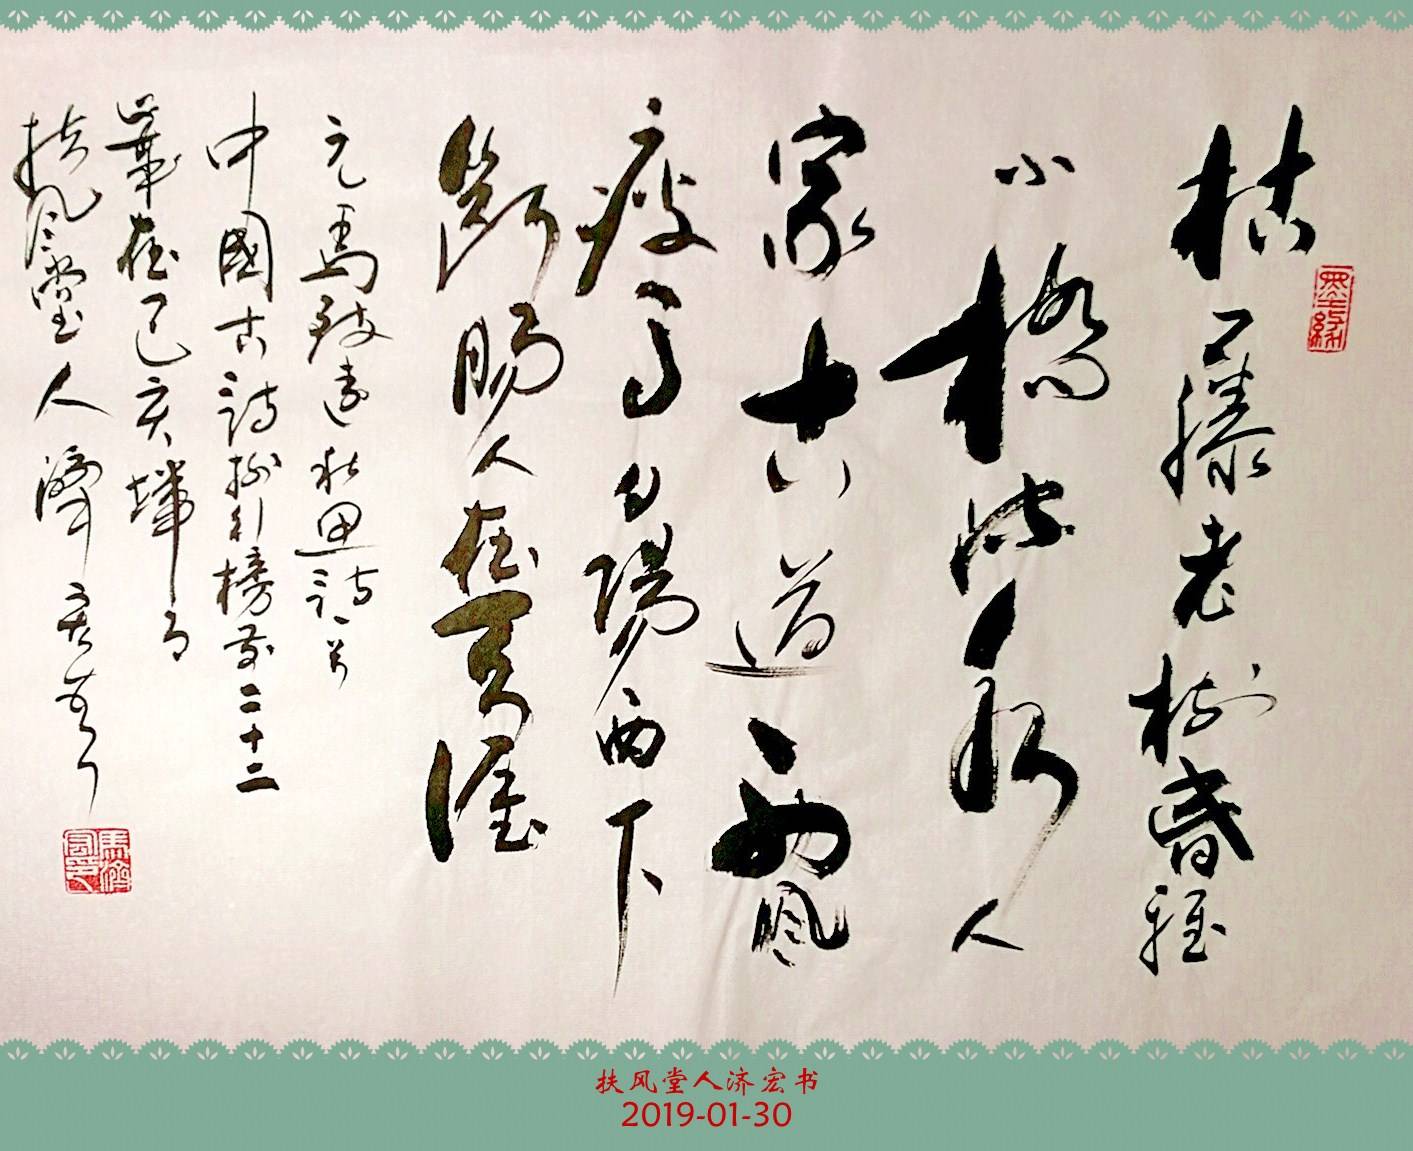 枯藤老树昏鸦
小橋流水人
家古道西風
瘦马夕陽西下
斷腸人在天涯
元馬致遠秋思詩一首
中國古詩排行榜第二十二
筆在己亥
扶風堂人濟宏書
墨緣
馬濟宏印
扶风堂人济宏书
2019-01-30